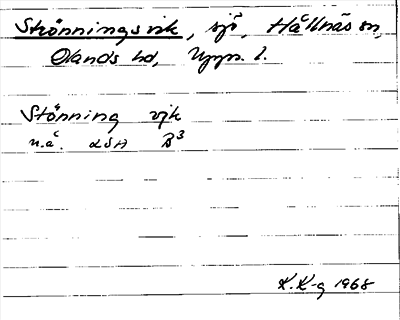 Strönningsvik, sjö, Hållnäs sn,
Olands hd, Uppn. l.
Stönning vjk
n.å. LSA B3
K. K-g 1968